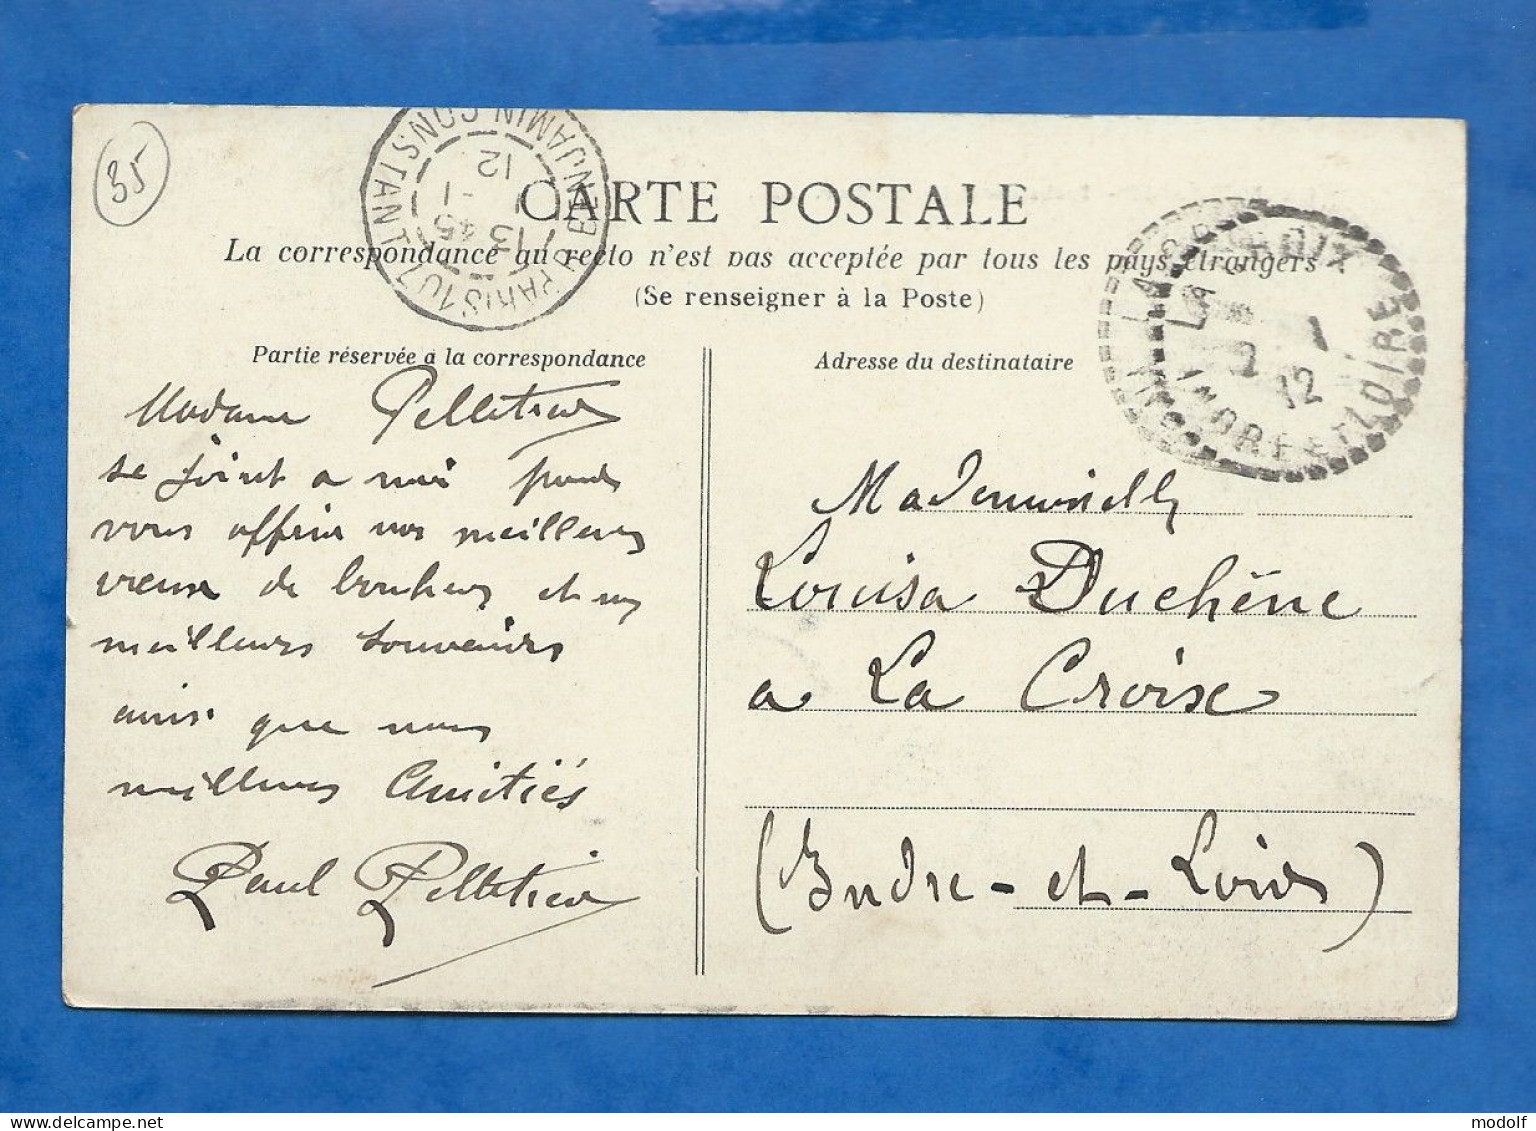 35
PARIS 107 R. BENJAMIN CONSTANT
13 45
-1
12
CARTE POSTALE
La correspondance au recto n'est pas acceptée par tous les pays étrangers
(Se renseigner à la Poste)
LA CROIX
INDRE ET LOIRE
2 -1
12
Partie réservée à la correspondance
Madame Pelletier
se joint a moi pour
vous offrir nos meilleurs
vœux de bonheur et nos
meilleurs souvenirs
ainsi que nous
meilleures Amitiés
Paul Pelletier
Adresse du destinataire
Mademoiselle
Louisa Duchêne
a La Croix
(Indre-et-Loire)
delcampe.net
modolf